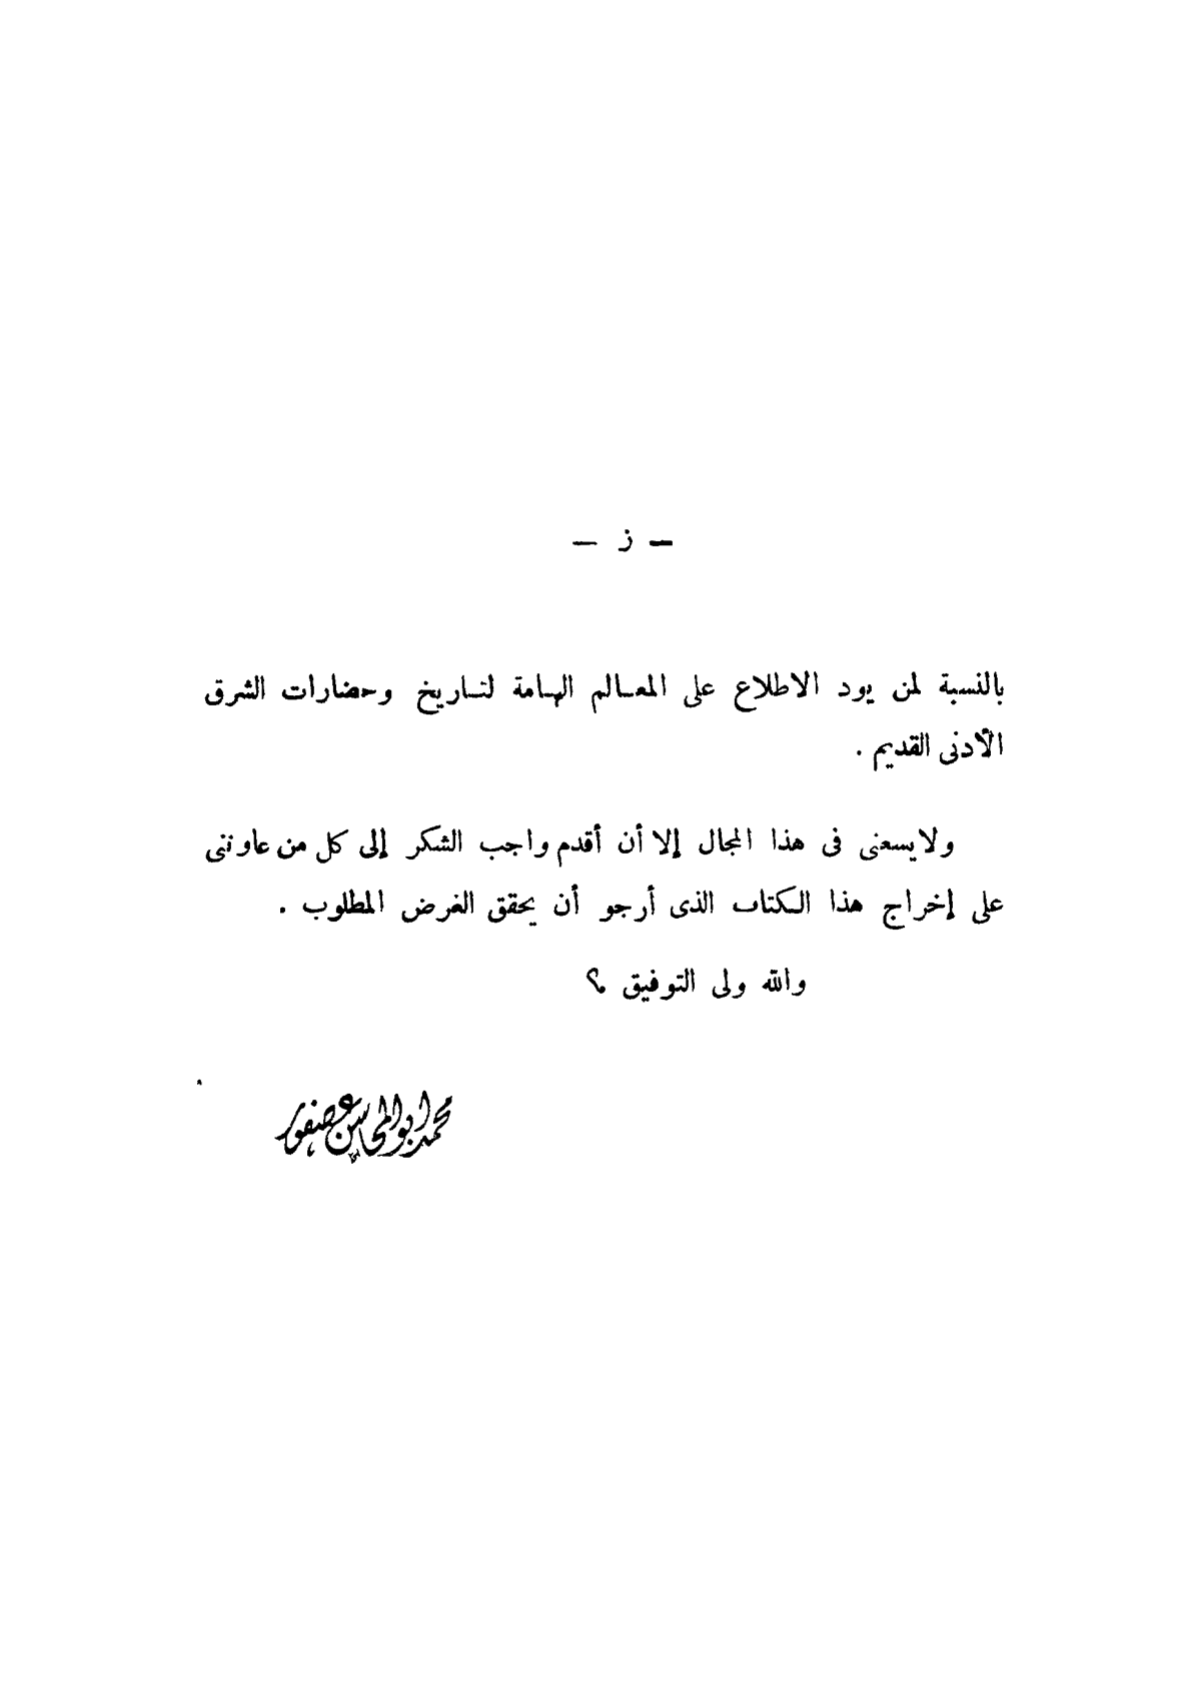 — ز —
بالنسبة لمن يود الاطلاع على المعالم الهامة لتاريخ وحضارات الشرق
الأدنى القديم .
ولايسعنى فى هذا المجال إلا أن أقدم واجب الشكر إلى كل من عاوننى
على إخراج هذا الكتاب الذى أرجو أن يحقق الغرض المطلوب .
والله ولى التوفيق ؟
محمد ابو المحاسن عصفور